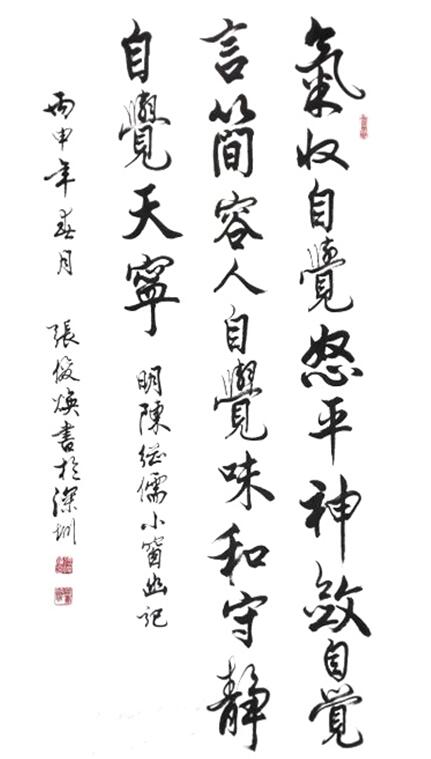 氣收自覺怒平神斂自覺
言簡容人自覺味和守靜
自覺天寧
明陳繼儒小窗幽記
丙申年春月
張俊煥書於深圳